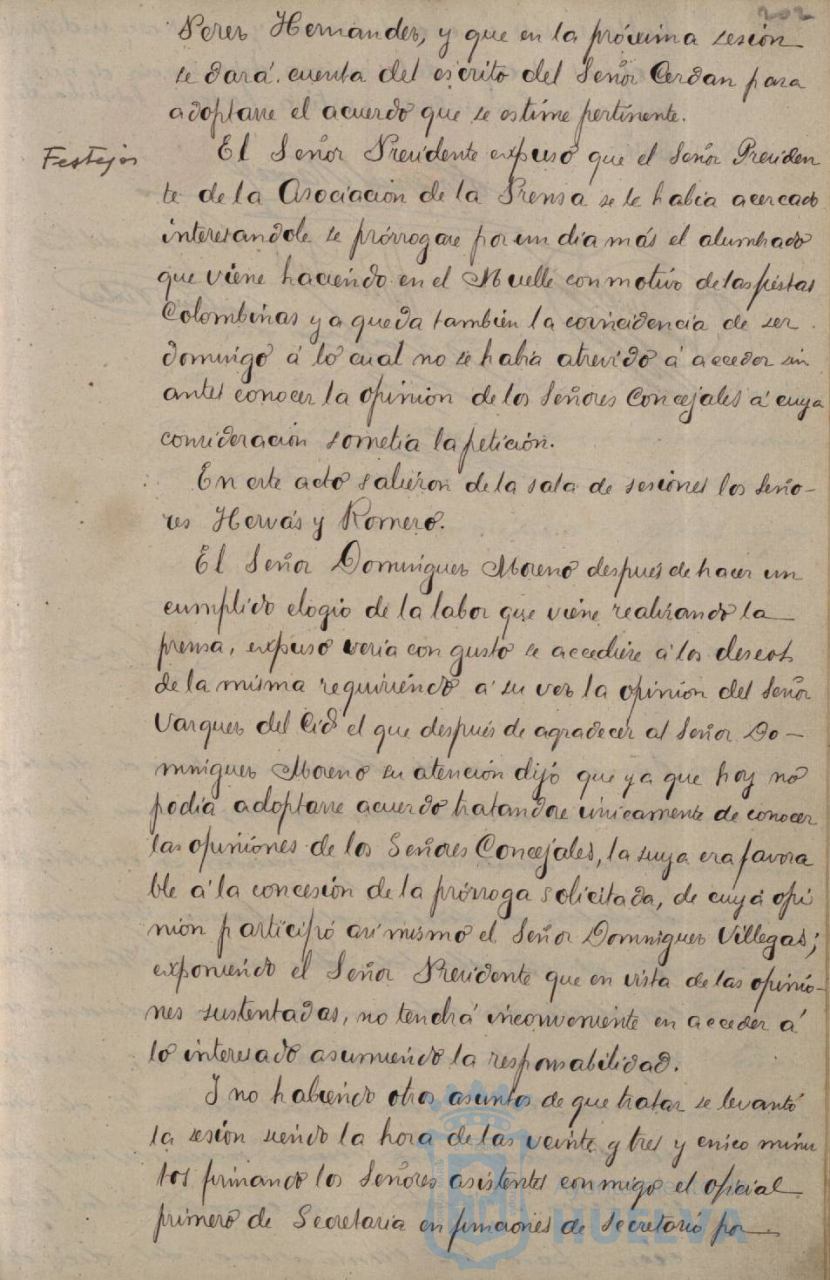 202
Perez Hernandez, y que en la próxima sesión
se dará cuenta del escrito del Señor Cerdan para
adoptarse el acuerdo que se estime pertinente.
Festejos
El Señor Presidente expuso que el Señor Presiden
te de la Asociación de la Prensa se le habia acercado
interesandole se prórrogase por un dia más el alumbrado
que viene haciendo en el Muelle con motivo de las fiestas
Colombinas y a queda también la coincidencia de ser
domingo á lo cual no se había atrevido á acceder sin
antes conocer la opinion de los Señores Concejales á cuya
consideración sometia la petición.
En este acto salieron de la sala de sesiones los Seño-
res Hervás y Romero.
El Señor Dominguez Moreno después de hacer un
cumplido elogio de la labor que viene realizando la
prensa, expuso veria con gusto se accediese á los deseos
de la misma requiriendo á su vez la opinión del Señor
Varquez del Cid el que después de agradecer al Señor Do-
minguez Moreno su atención dijó que ya que hoy no
podia adoptarse acuerdo tratandose únicamente de conocer
las opiniones de los Señores Concejales, la suya era favora
ble á la concesión de la prórroga solicitada, de cuya opi
nion participó asi mismo el Señor Dominguez Villegas;
exponiendo el Señor Presidente que en vista de las opinio-
nes sustentadas, no tendrá inconveniente en acceder á
lo interesado asumiendo la responsabilidad.
Y no habiendo otros asuntos de que tratar se levantó
la sesión siendo la hora de las veinte y tres y cinco minu
tos firmando los Señores asistentes conmigo el oficial
primero de Secretaria en funciones de Secretario por
HUELVA